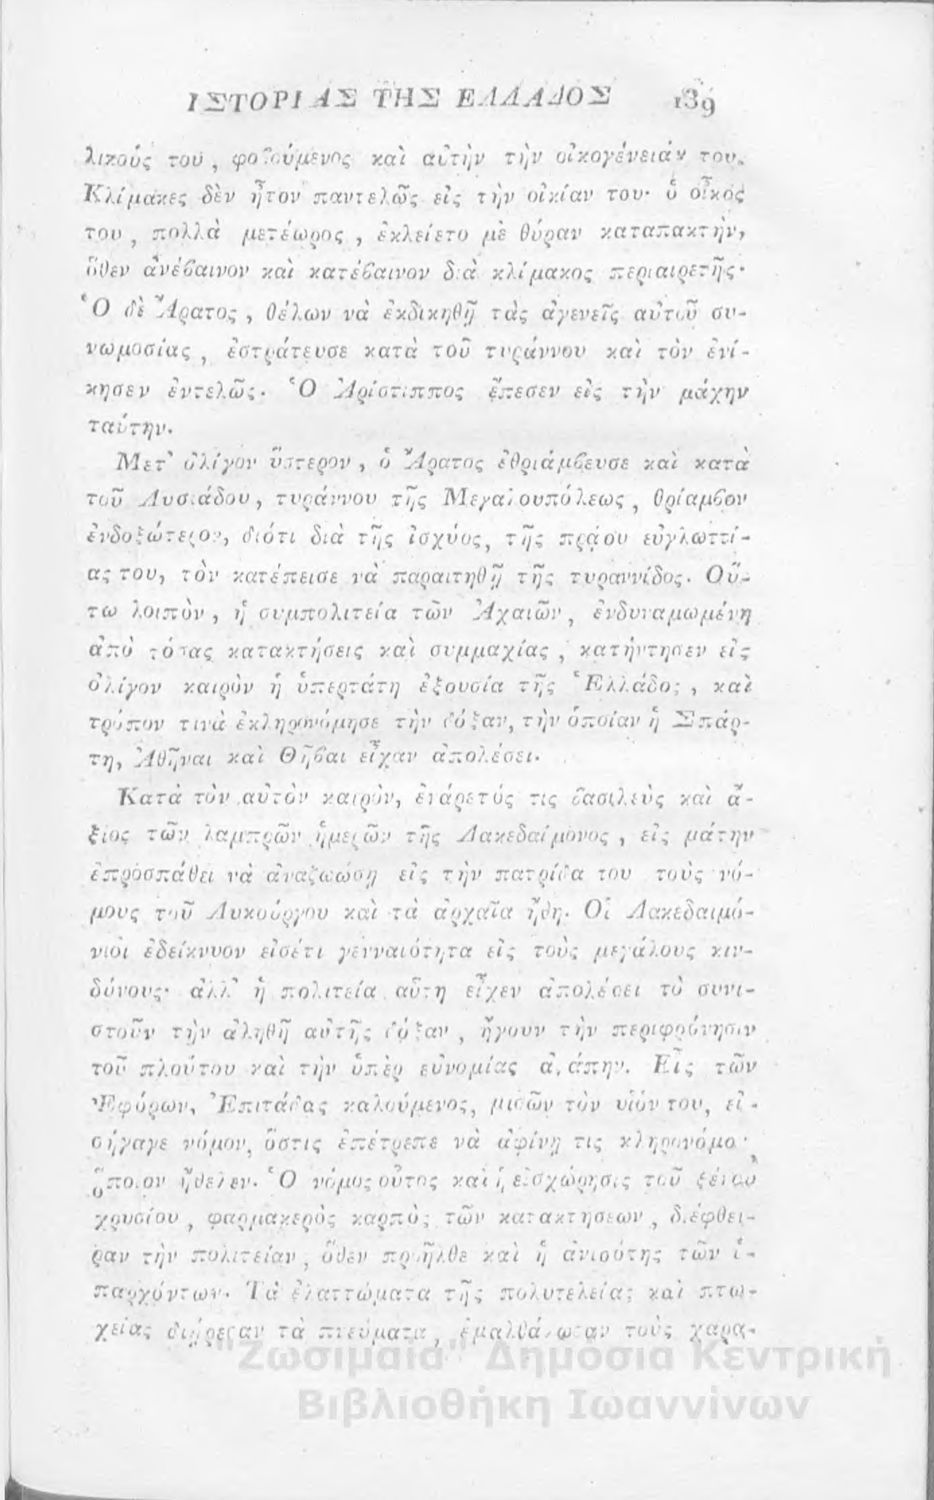 ΙΣΤΟΡΙΑΣ ΤΗΣ ΕΛΛΑΔΟΣ 139
λικούς του, φοβούμενος καὶ αὐτὴν τὴν οἰκογένειάν του.
Κλίμακες δὲν ἦτον παντελῶς εἰς τὴν οἰκίαν του· ὁ οἶκός
του, πολλὰ μετέωρος, ἐκλείετο μὲ θύραν καταπακτὴν,
ὅθεν ἀνέβαινον καὶ κατέβαινον διὰ κλίμακος περιαιρετῆς·
Ὁ δὲ Ἄρατος, θέλων νὰ ἐκδικηθῇ τὰς ἀγενεῖς αὐτοῦ συ-
νωμοσίας, ἐστράτευσε κατὰ τοῦ τυράννου καὶ τὸν ἐνί-
κησεν ἐντελῶς. Ὁ Ἀρίστιππος ἔπεσεν εἰς τὴν μάχην
ταύτην.
Μετ' ὀλίγον ὕστερον, ὁ Ἄρατος ἐθριάμβευσε καὶ κατὰ
τοῦ Λυσιάδου, τυράννου τῆς Μεγαλουπόλεως, θρίαμβον
ἐνδοξώτερον, διότι διὰ τῆς ἰσχύος, τῆς πράου εὐγλωττί-
ας του, τὸν κατέπεισε νὰ παραιτηθῇ τῆς τυραννίδος. Οὕ-
τω λοιπὸν, ἡ συμπολιτεία τῶν Ἀχαιῶν, ἐνδυναμωμένη
ἀπὸ τόσας κατακτήσεις καὶ συμμαχίας, κατήντησεν εἰς
ὀλίγον καιρὸν ἡ ὑπερτάτη ἐξουσία τῆς Ἑλλάδος, καὶ
τρόπον τινὰ ἐκληρονόμησε τὴν δόξαν, τὴν ὁποίαν ἡ Σπάρ-
τη, Ἀθῆναι καὶ Θῆβαι εἶχαν ἀπολέσει.
Κατὰ τὸν αὐτὸν καιρὸν, ἐνάρετός τις βασιλεὺς καὶ ἄ-
ξιος τῶν λαμπρῶν ἡμερῶν τῆς Λακεδαίμονος, εἰς μάτην
ἐπρόσπάθει νὰ ἀναζωώσῃ εἰς τὴν πατρίδα του τοὺς νό-
μους τοῦ Λυκούργου καὶ τὰ ἀρχαῖα ἤθη. Οἱ Λακεδαιμό-
νιοι ἐδείκνυον εἰσέτι γενναιότητα εἰς τοὺς μεγάλους κιν-
δύνους· ἀλλ' ἡ πολιτεία αὕτη εἶχεν ἀπολέσει τὸ συνι-
στοῦν τὴν ἀληθῆ αὐτῆς δόξαν, ἤγουν τὴν περιφρόνησιν
τοῦ πλούτου καὶ τὴν ὑπὲρ εὐνομίας ἀγάπην. Εἷς τῶν
Ἐφόρων, Ἐπιτάδας καλούμενος, μισῶν τὸν υἱόν του, εἰ-
σήγαγε νόμον, ὅστις ἐπέτρεπε νὰ ἀφίνῃ τις κληρονόμον
ὅποιον ἤθελεν. Ὁ νόμος οὗτος καὶ ἡ εἰσχώρησις τοῦ ξένου
χρυσίου, φαρμακερὸς καρπὸς τῶν κατακτήσεων, διέφθει-
ραν τὴν πολιτείαν, ὅθεν προῆλθε καὶ ἡ ἀνισότης τῶν ὑ-
παρχόντων. Τὰ ἐλαττώματα τῆς πολυτελείας καὶ πτω-
χείας διῄρεσαν τὰ πνεύματα, ἐμαλθάκωσαν τοὺς χαρα-
"Ζωσιμαία" Δημόσια Κεντρική
Βιβλιοθήκη Ιωαννίνων